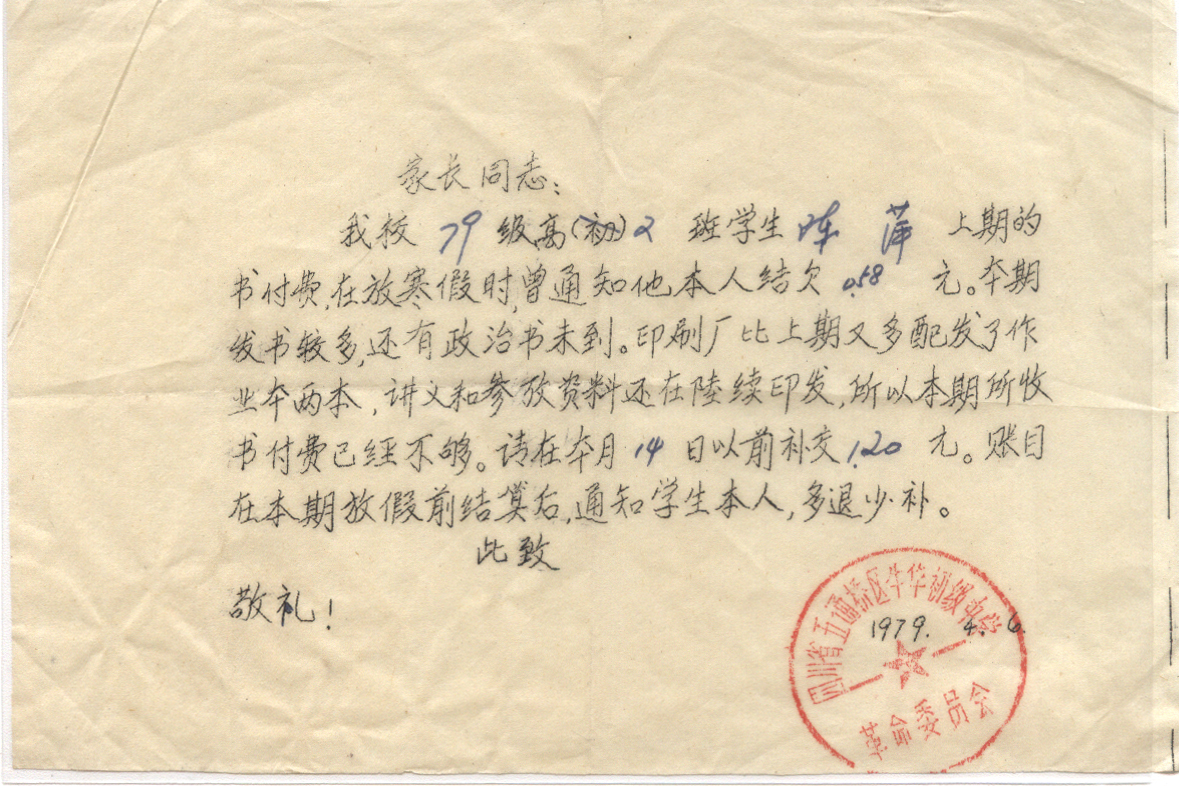 家长同志：
我校 79 级高(初)2 班学生 陈 萍 上期的
书付费,在放寒假时,曾通知他本人结欠 0.58 元。本期
发书较多,还有政治书未到。印刷厂比上期又多配发了作
业本两本,讲义和参放资料还在陸续印发,所以本期所收
书付费已经不够。请在本月 14 日以前补交 1.20 元。账目
在本期放假前结算后,通知学生本人,多退少补。
此致
敬礼！
1979. 4. 6.
四川省五通桥区牛华初级中学
革命委员会